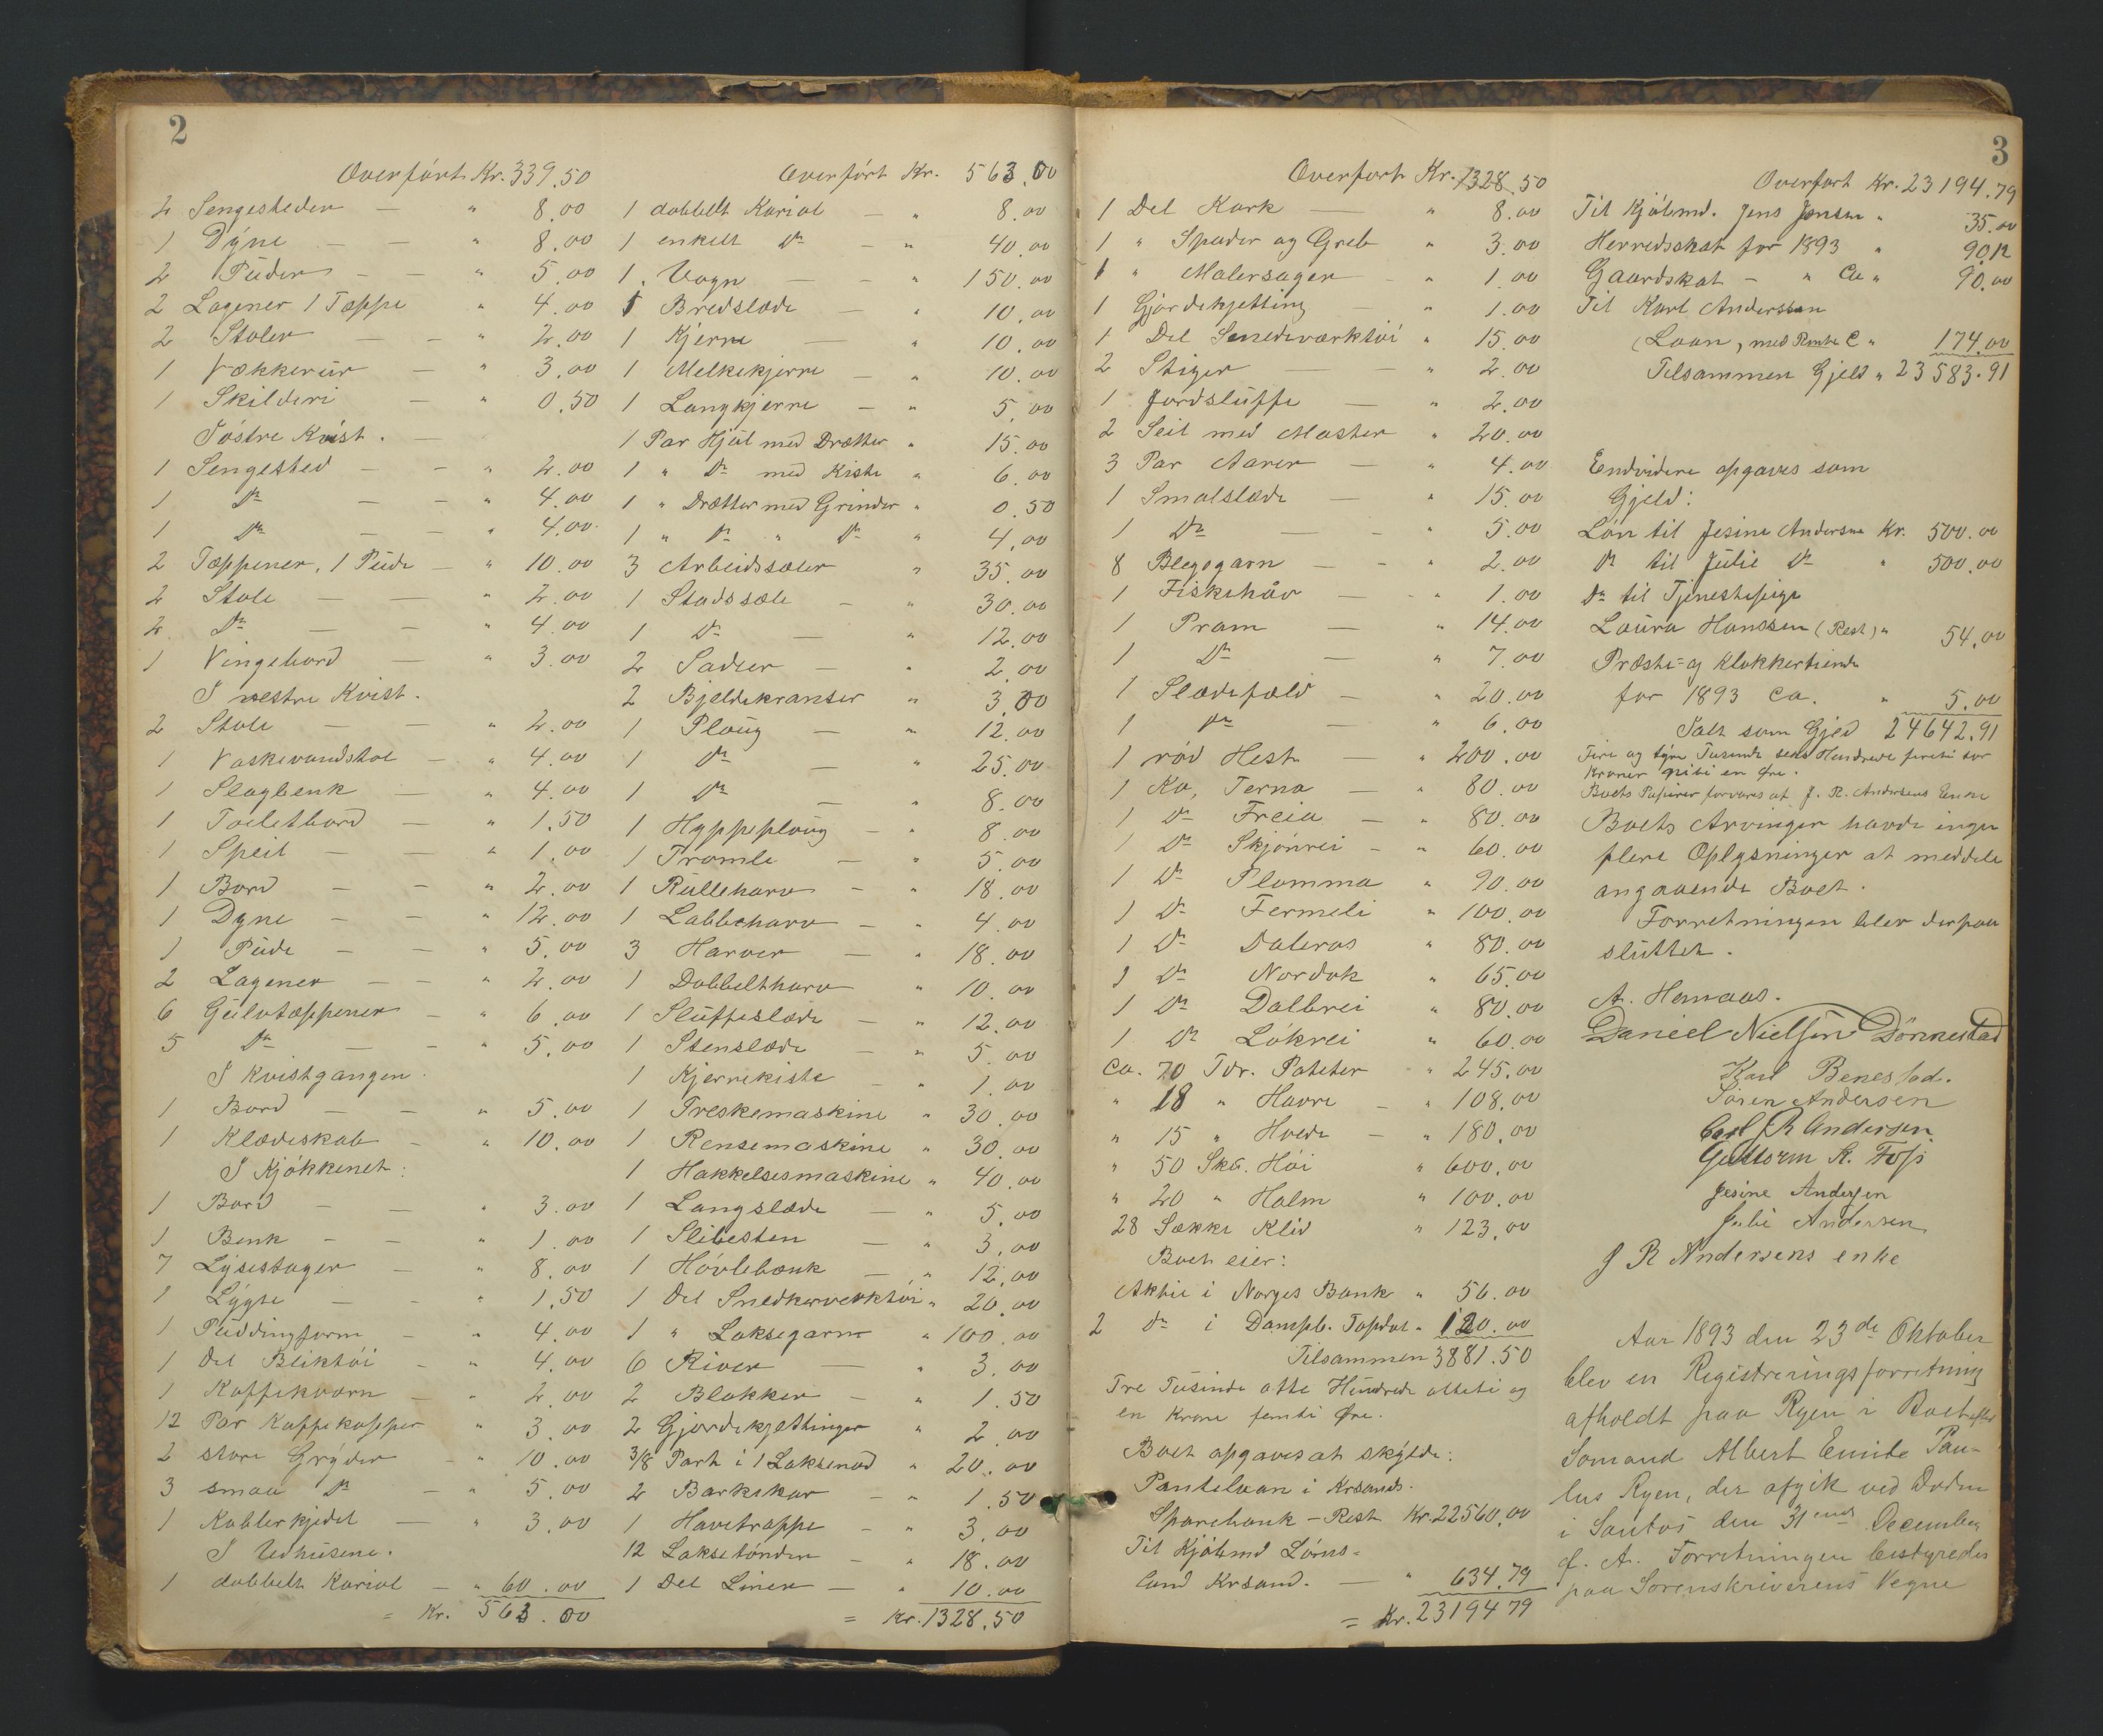 2
Overført Kr. 339.50
2 Sengesteder — " 8.00
1 Dyne — — " 8.00
2 Puder — — " 5.00
2 Lagener 1 Tæppe " 4.00
2 Stoler — — " 2.00
1 Vækkerur — " 3.00
1 Skilderi — " 0.50
I østre Kvist. —
1 Sengested — — " 2.00
1 Do — — " 4.00
1 Do — — " 4.00
2 Tæppener, 1 Pude — " 10.00
2 Stole — — " 2.00
2 Do — — " 4.00
1 Vingebord — " 3.00
I vestre Kvist.
2 Stole — — " 2.00
1 Vaskevandstol — " 4.00
1 Slagbenk — " 4.00
1 Toiletbord — " 1.50
1 Speil — — " 1.00
1 Bord — — " 2.00
1 Dyne — — " 12.00
1 Pude — — " 5.00
2 Lagener — — " 2.00
6 Gulvtæppener — " 6.00
5 Do — — " 5.00
I Kvistgangen.
1 Bord — — " 5.00
1 Klædeskab — " 10.00
I Kjøkkenet:
1 Bord — — " 3.00
1 Benk — — " 1.00
7 Lysestager — " 8.00
1 Lygte — — " 1.50
1 Puddingform — " 4.00
1 Del Bliktøi — " 4.00
1 Kaffekværn — " 2.00
12 Par Kaffekopper " 3.00
2 store Gryder — " 10.00
3 smaa Do — " 5.00
1 Kobberkjedel — " 3.00
I Udhusene.
1 dobbelt Kariol — " 60.00
= Kr. 563.00
Overført Kr. 563.00
1 dobbelt Kariol — " 8.00
1 enkelt Do — " 40.00
1 Vogn — — " 150.00
1 Bredslæde — " 10.00
1 Kjerre — " 10.00
1 Melkekjerre — " 10.00
1 Langkjerre — " 5.00
1 Par Hjul med Drætter " 15.00
1 " Do med Kiste " 6.00
1 " Drætter med Grinder " 0.50
1 " Do " Do " 4.00
3 Arbeidssæler " 35.00
1 Stadssæle — " 30.00
1 Do — " 12.00
2 Sadler — " 2.00
2 Bjeldekranser " 3.00
1 Ploug — " 12.00
1 Do — " 25.00
1 Do — " 8.00
1 Hyppeploug — " 8.00
1 Tromle — " 5.00
1 Rulleharv — " 18.00
1 Labbeharv — " 4.00
3 Harver — " 18.00
1 Dobbeltharv " 10.00
1 Sluffeslæde — " 12.00
1 Stenslæde — " 5.00
1 Kjerrekiste — " 1.00
1 Treskemaskine " 30.00
1 Rensemaskine " 30.00
1 Hakkelsesmaskine " 40.00
1 Langslæde — " 5.00
1 Slibesten — " 3.00
1 Høvlebænk — " 12.00
1 Del Snedkerverktøi " 20.00
1 " Laksegarn " 100.00
6 River — " 3.00
2 Blokker — " 1.50
2 Gjordekjettinger " 2.00
3/8 Part i 1 Laksenod " 20.00
2 Barkekar — " 1.50
1 Havetrappe — " 3.00
12 Laksetønder — " 18.00
1 Del Liner — " 10.00
= Kr. 1328.50
3
Overført Kr. 1328.50
1 Del Kork — " 8.00
1 " Spader og Greb " 3.00
1 " Malersager — " 1.00
1 Gjordekjetting — " 1.00
1 Del Smedeværktøi " 15.00
2 Stiger — — " 2.00
1 Jordsluffe — " 2.00
2 Seil med Master " 20.00
3 Par Aarer — " 4.00
1 Smalslæde — " 15.00
1 Do — — " 5.00
8 Blegogarn — — " 2.00
1 Fiskehåv — — " 1.00
1 Pram — " 14.00
1 Do — " 7.00
1 Slædefæld — " 20.00
1 Do — " 6.00
1 rød Hest — " 200.00
1 Ko, Terna — " 80.00
1 Do Freia — " 80.00
1 Do Skjønrei — " 60.00
1 Do Plomma " 90.00
1 Do Fermeli " 100.00
1 Do Daleros " 80.00
1 Do Nordok " 65.00
1 Do Dalbrei " 80.00
1 Do Løkrei " 60.00
Ca. 70 Tdr. Poteter " 245.00
" 18 " Havre — " 108.00
" 15 " Hvede — " 180.00
" 50 Skb. Høi " 600.00
" 20 " Halm " 100.00
28 Sække Klid " 123.00
Boet eier:
Aktie i Norges Bank " 56.00
2 do i Dampb. Topdal " 120.00
Tilsammen 3881.50
Tre Tusinde otte Hundrede otteti og
en Krone femti Øre.
Boet opgaves at skylde:
Pantelaan i Krsands.
Sparebank – Rest Kr. 22560.00
Til Kjøbmd Lørns-
lund Krsand. — " 634.79
= Kr. 23194.79
Overført Kr. 23194.79
Til Kjøbmd. Jens Jensen " 35.00
Herredsskat for 1893 " 90.12
Gaardskat – " Ca " 90.00
Til Karl Anderssen
(Laan, med Rente C " 174.00
Tilsammen Gjeld " 23583.91
Endvidere opgaves som
Gjeld:
Løn til Jesine Andersen Kr. 500.00
Do til Julie Do " 500.00
Do til Tjenestepige
Laura Hanssen (Rest) " 54.00
Præste- og Klokkertiende
for 1893 ca. " 5.00
Salt som Gjeld 24642.91
Fire og tyve Tusinde seks Hundrede fireti tor
Kroner niti en Øre.
Boets Papirer forvares af J. R. Andersens Enke
Boets Arvinger havde ingen
flere Oplysninger at meddele
angaaende Boet.
Forretningen blev derpaa
sluttet.
A. Hemaas.
Daniel Nielsen Dønnestad
Karl Benestad.
Søren Andersen
Carl R Andersen
Guttorm K. Foss
Jesine Andersen
Julie Andersen
J R Andersens enke
Aar 1893 den 23de Oktober
blev en Registreringsforretning
afholdt paa Ryen i Boet efter
Sømand Albert Emile Pau-
lus Ryen, der afgik ved Døden
i Santos den 31 December
f. A. Forretningen bestyredes
paa Sorenskriverens Vegne